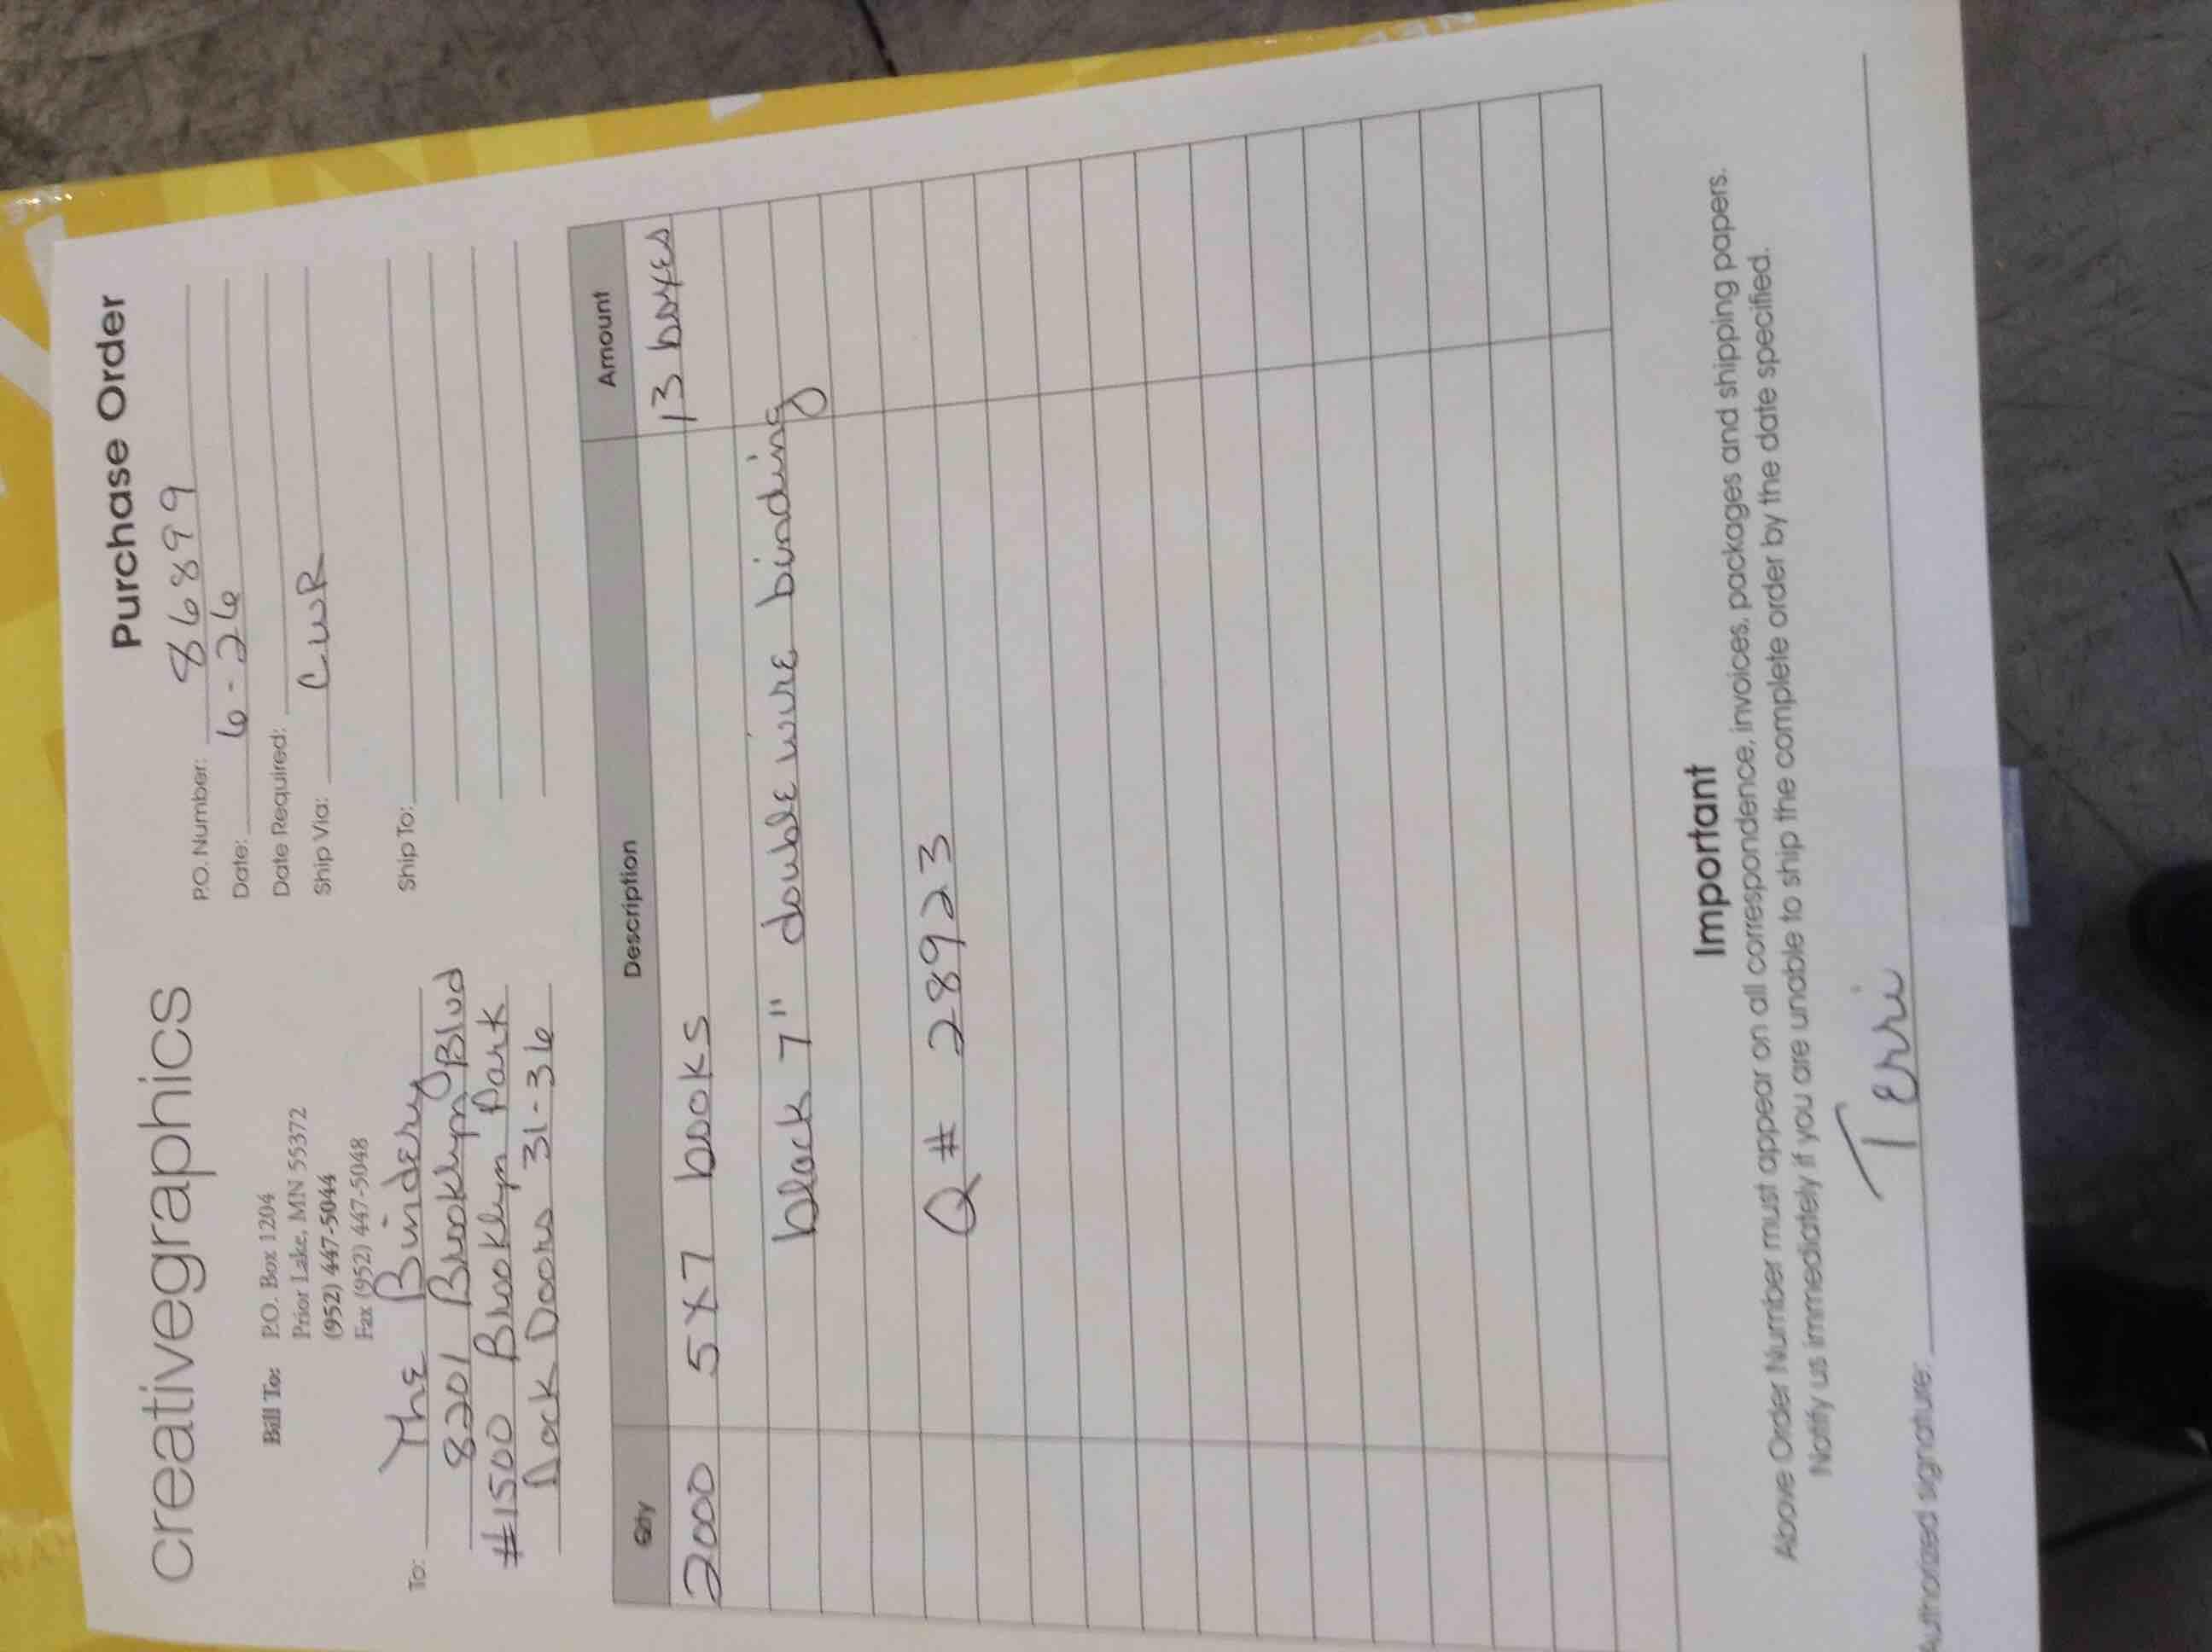 creativegraphics
Purchase Order
Bill To: P.O. Box 1204
Prior Lake, MN 55372
(952) 447-5044
Fax (952) 447-5048
P.O. Number: 86899
Date: 6-26
Date Required:
Ship Via: CWR
To: The Bindery
8201 Brooklyn Blvd
#1500 Brooklyn Park
Dock Doors 31-36
Ship To:
Qty Description Amount
2000 5x7 books 13 boxes
black 7" double wire binding
Q# 28923
Important
Above Order Number must appear on all correspondence, invoices, packages and shipping papers.
Notify us immediately if you are unable to ship the complete order by the date specified.
Authorized signature: Terri